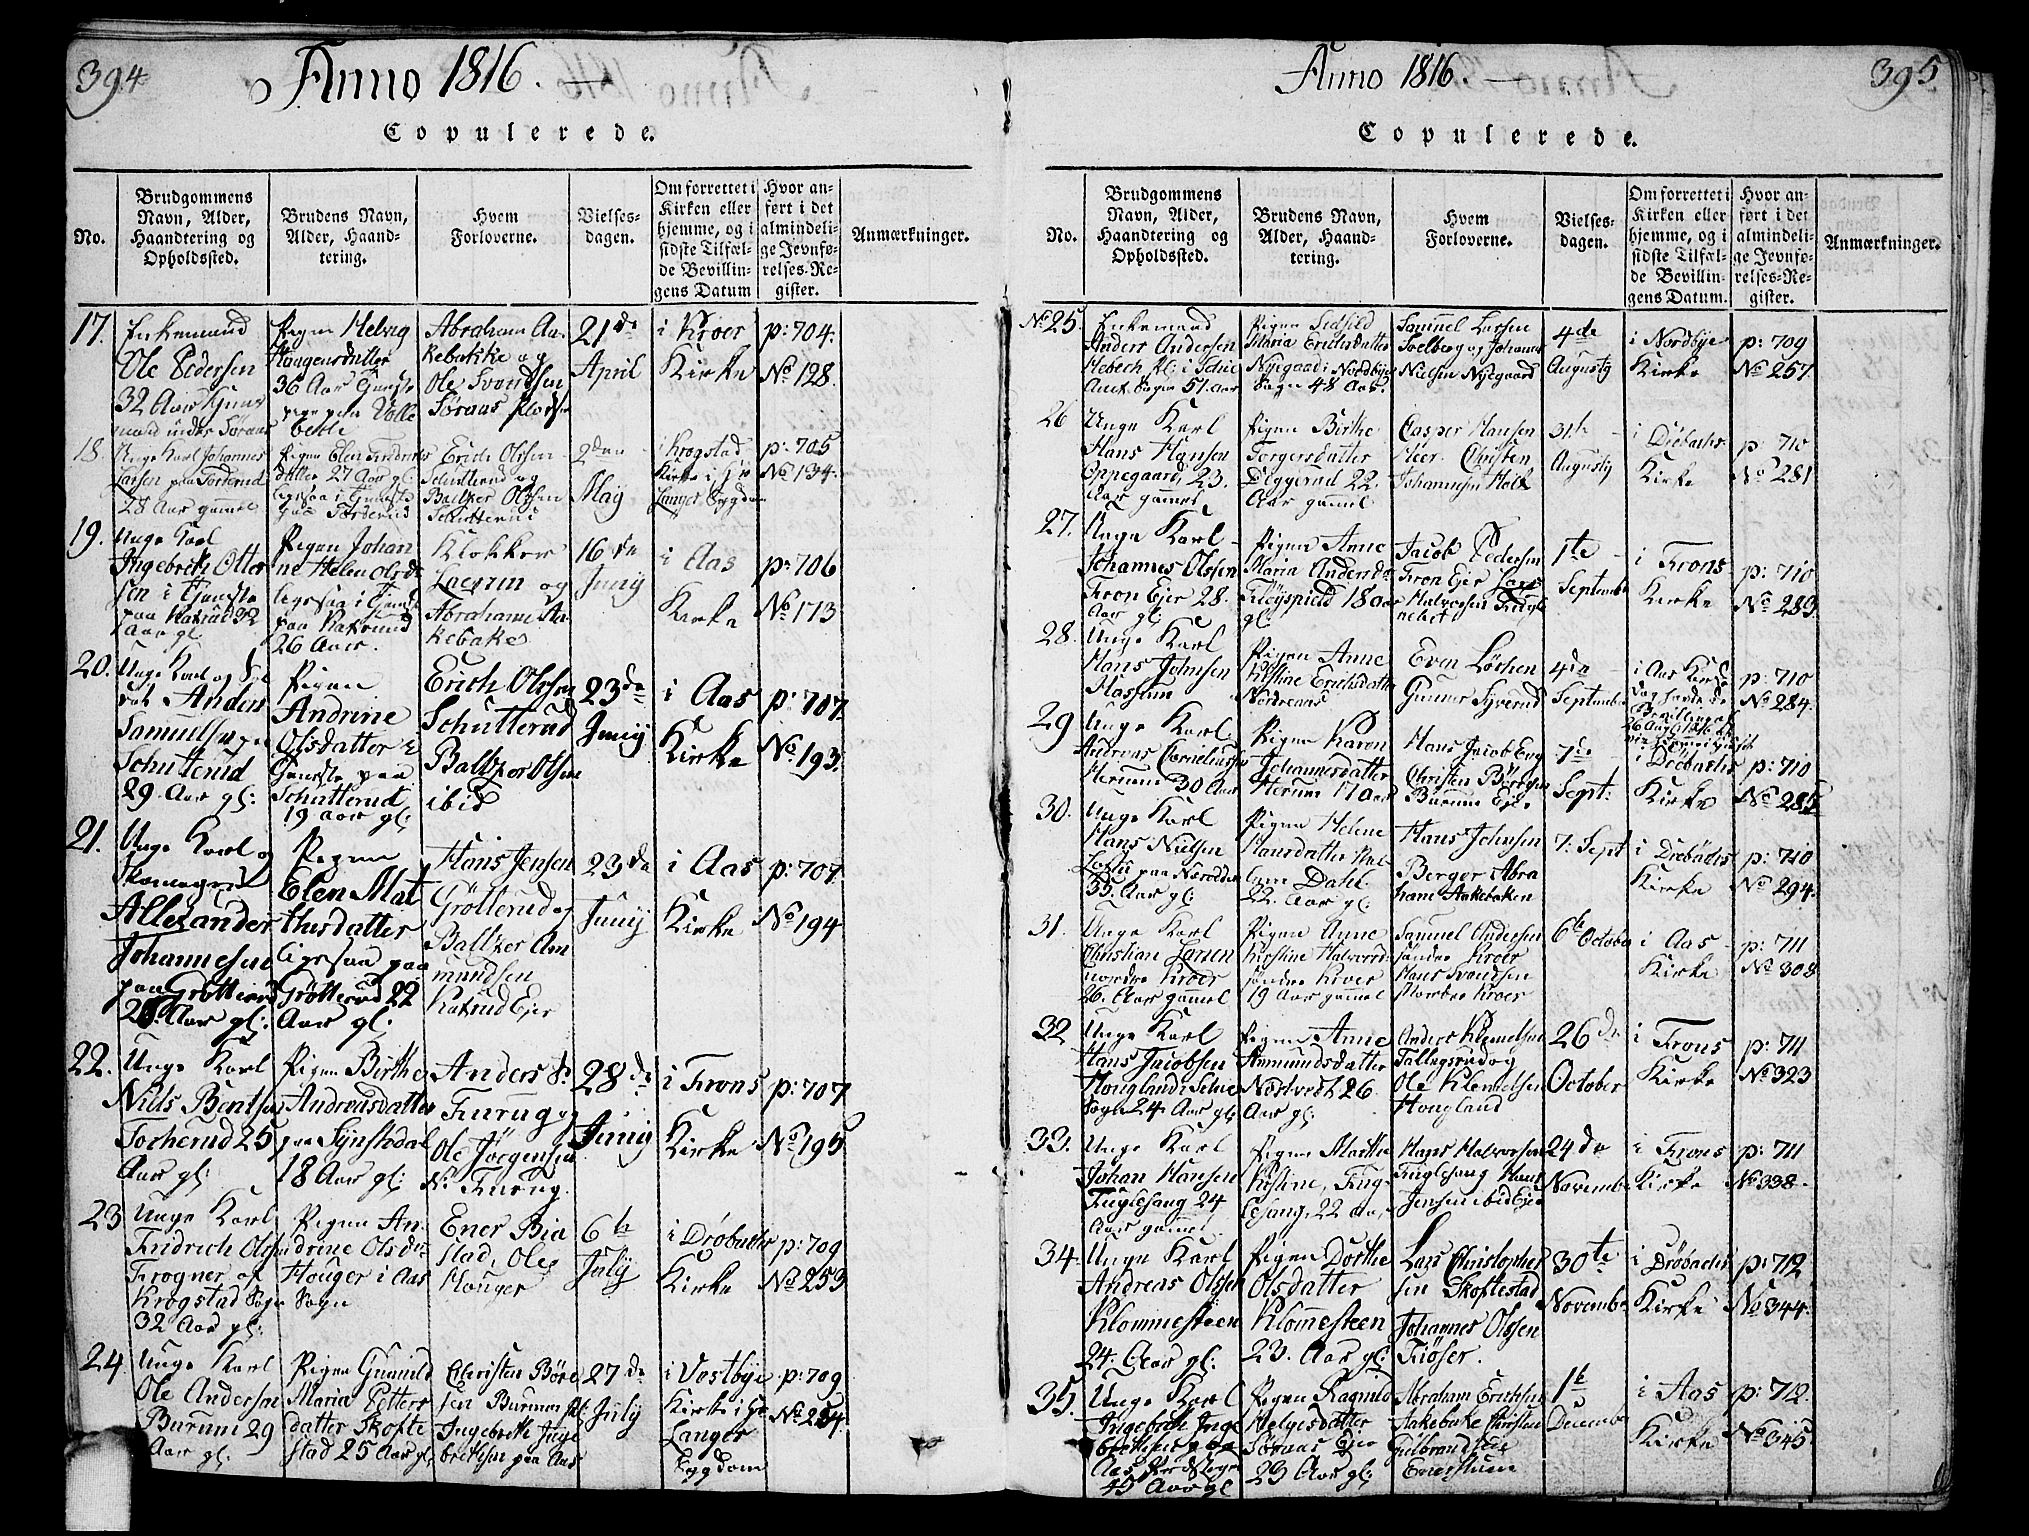 394
Anno 1816.
Copulerede.
No.
Brudgommens
Navn, Alder,
Haandtering og
Opholdssted.
Brudens Navn,
Alder, Haand-
tering.
Hvem
Forloverne.
Vielses-
dagen.
Om forrettet i
Kirken eller
hjemme, og i
sidste Tilfæl-
de Bevillin-
gens Datum
Hvor an-
ført i det
almindeli-
ge Jevnfø-
relses-Re-
gister.
Anmærkninger.
17.
Enkemand
Ole Pedersen
32 Aar
Pigen Helvig
Haagensdatter
36 Aar
Abraham Aa-
kebakke og
Ole Svendsen
Søraas
21de
April
i Kroer
Kirke
p: 704.
No 128.
18.
Unge Karl Johannes
Larsen paa
28 Aar gammel
Pigen Elen
27 Aar gl.
Erich Olsen
Schutterud og
Baltzer Olsen
Schutterud
2den
Maij
i Krogstad
Kirke i
Langer Bygden
p: 705
No 134.
19.
Unge Karl
Ingebreth Otter
sen i Tjeneste
paa Rakrud 32
Aar gl.
Pigen Johan
ne Helen Olsdr
ligesaa i Tjeneste
paa Rakrud
26 Aar.
Klokker
og
Abraham Aa-
kebake
16 de
Junij
i Aas
Kirke
p: 706
No 173
20.
Unge Karl og
Anders
Samuelsen
Schuterud
29. Aar gl:
Pigen
Andrine
Olsdatter i
Tjeneste paa
Schutterud
19 aar gl:
Erich Olssen
Schutterud
Baltzer Olsen
ibid
23de
Junij
i Aas
Kirke
p: 707.
No 193.
21.
Unge Karl og
Skomager
Allexander
Johannesen
paa Grøtterud
Aar gl:
Pigen
Elen Mat
thisdatter
ligesaa paa
Grøtterud 22
Aar gl:
Hans Jensen
Grøtterud og
Baltzer Am
mundsen
Rakrud Ejer
23 de
Junij
i Aas
Kirke
p: 707.
No 194
22.
Unge Karl
Niels Bentsen
Tocherud 25
Aar gl:
Pigen Birthe
Andreasdatter
paa
18 Aar gl:
Anders
Furug og
Ole Jørgensen
N. Furug.
28 de
Junij
i Frons
Kirke
p: 707
No 195
23
Unge Karl
Fridrich Olsen
Frogner af
Krogstad Sogn
32 Aar gl:
Pigen An-
drine Olsdr
Houger i Aas
Sogn
Ener Bia
stad, Ole
Houger
6te
July
i Drøbachs
Kirke
p: 709
No 253
24
Unge Karl
Ole Andersen
Burum 29
Aar gl:
Pigen Gunild
Maria Petters
datter Skofte
stad 25 Aar gl
Christen Børe
sen Burum
Ingebreth Inge
bretsen paa Aas
27 de
July
i Vestbye
Kirke i
Langer
bygdom
p: 709
No 254.
395
Anno 1816.
Copulerede.
No.
Brudgommens
Navn, Alder,
Haandtering og
Opholdssted.
Brudens Navn,
Alder, Haand-
tering.
Hvem
Forloverne.
Vielses-
dagen.
Om forrettet i
Kirken eller
hjemme, og i
sidste Tilfæl-
de Bevillin-
gens Datum.
Hvor an-
ført i det
almindeli-
ge Jevnfø-
relses-Re-
gister.
Anmærkninger.
No 25.
Enkemand
Anders Andersen
51. Aar
Pigen
Maria Erichsdatter
Nyegaard i Nordbye
Sogn 48 Aar
Samuel Larsen
Solberg og Johannes
Nielsen Nyegaard
4de
Augusty
i Nordbye
Kirke
p: 709
No 257.
26
Unge Karl
Hans Hansen
Oppegaard, 23.
Aar gammel
Pigen Birthe
Torgersdatter
Diggerud 22.
Aar gammel
Casper Hansen
Meer. Christen
Johannesen Holt
31te
Augusty
i Drøbachs
Kirke
p. 710
No 281
27.
Unge Karl
Johannes Olssen
Fron Ejer 28.
Aar gl:
Pigen Anne
Maria Andersdr
18 aar
gl:
Jacob Pedersen
Fron Ejer Lars
Halvorsen
1te
September
i Frons
Kirke
p: 710
No 283
28.
Unge Karl
Hans Johnsen
Hassum
Pigen Anne
Kirstine Erichsdatter
Nordraas
Even Løchen
Gunner Syverud
4de
September
i Aas Kirke
p: 710
No 284.
29
Unge Karl
Andreas Corneliussen
Herum 30 Aar
Pigen Karen
Johannesdatter
Herum 17 aar
Hans Jacob
Christen Børesen
Burum Ejer
7de
Sept:
i Drøbachs
Kirke
p: 710
No 285
30.
Unge Karl
Hans Nielsen
35 Aar gl:
Pigen Helene
Hansdatter
Dahl
22. Aar gl:
Hans Johnsen
Berger Abra
ham Aakebaken
7. Sept
i Drøbachs
Kirke
p: 710
No 294.
31.
Unge Karl
Christian Larsen
nordre Kroer
26. Aar gammel
Pigen Anne
Kirstine Halvorsd:
søndre Kroer
19 Aar gammel
Samuel Andersen
søndre Kroer
Hans Svendsen
Nordre Kroer
6te October
i Aas
Kirke
p: 711
No 308
32
Unge Karl
Hans Jacobsen
Hougland
Sogn 24 Aar gl
Pigen Anne
Ammundsdatter
Nordvedt 26
Aar gl:
Anders Klemetsen
Tallagsrud og
Ole Klemetsen
Hougland
26 de
October
i Frons
Kirke
p: 711
No 323
33.
Unge Karl
Johan Hansen
Fuglesang 24
Aar gammel
Pigen Marthe
Kirstine, Fug-
lesang, 22 aar
Hans Halvorsen
Fuglesang Hans
Jensen ibid Ejer
24 de
November
i Frons
Kirke
p: 711
No 338.
34.
Unge Karl
Andreas Olssen
Klommesteen
24. Aar gl:
Pigen Dorthe
Olsdatter
Klommesteen
23. Aar gl:
Lars Christopher
sen Skoftestad
Johannes Olssen
Fiøser.
30te
November
i Drøbachs
Kirke
p: 712
No 344.
35.
Unge Karl
Ingebreth Inge
bretsen paa
Aas
45 Aar gl
Pigen Ragnild
Helgesdatter
Søraas Ejer
23 Aar gl:
Abraham Erichsen
Aakebake Christen
Gulbrandsen
1te
December
i Aas
Kirke
p: 712.
No 345.